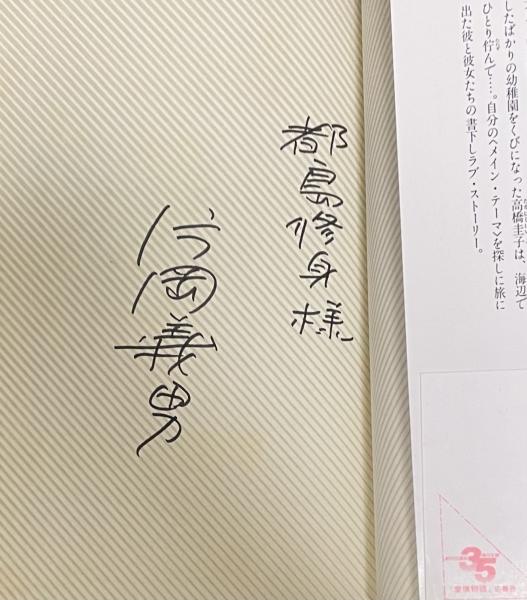 したばかりの幼稚園をくびになった高橋圭子は、海辺で
ひとり佇んで……。自分の〈メイン・テーマ〉を探しに旅に
出た彼と彼女たちの書下しラブ・ストーリー。
都島修身様
片岡義男
35